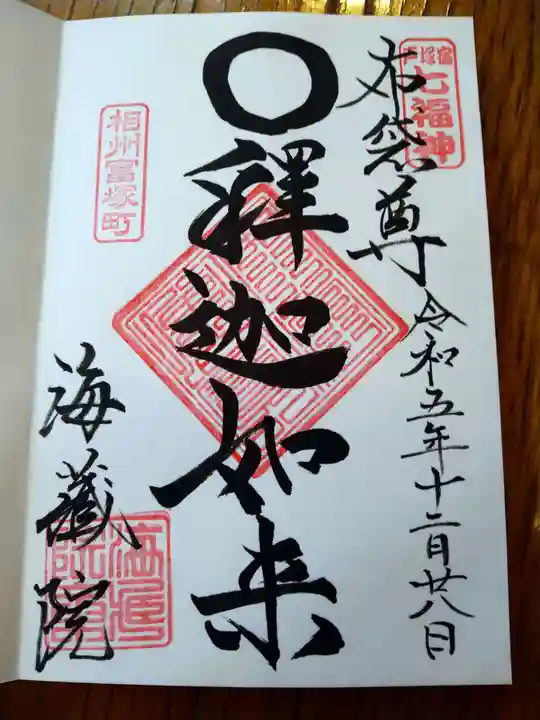 戸塚宿
七福神
布袋尊
令和五年十二月廿八日
釋迦如来
相州富塚町
海蔵院